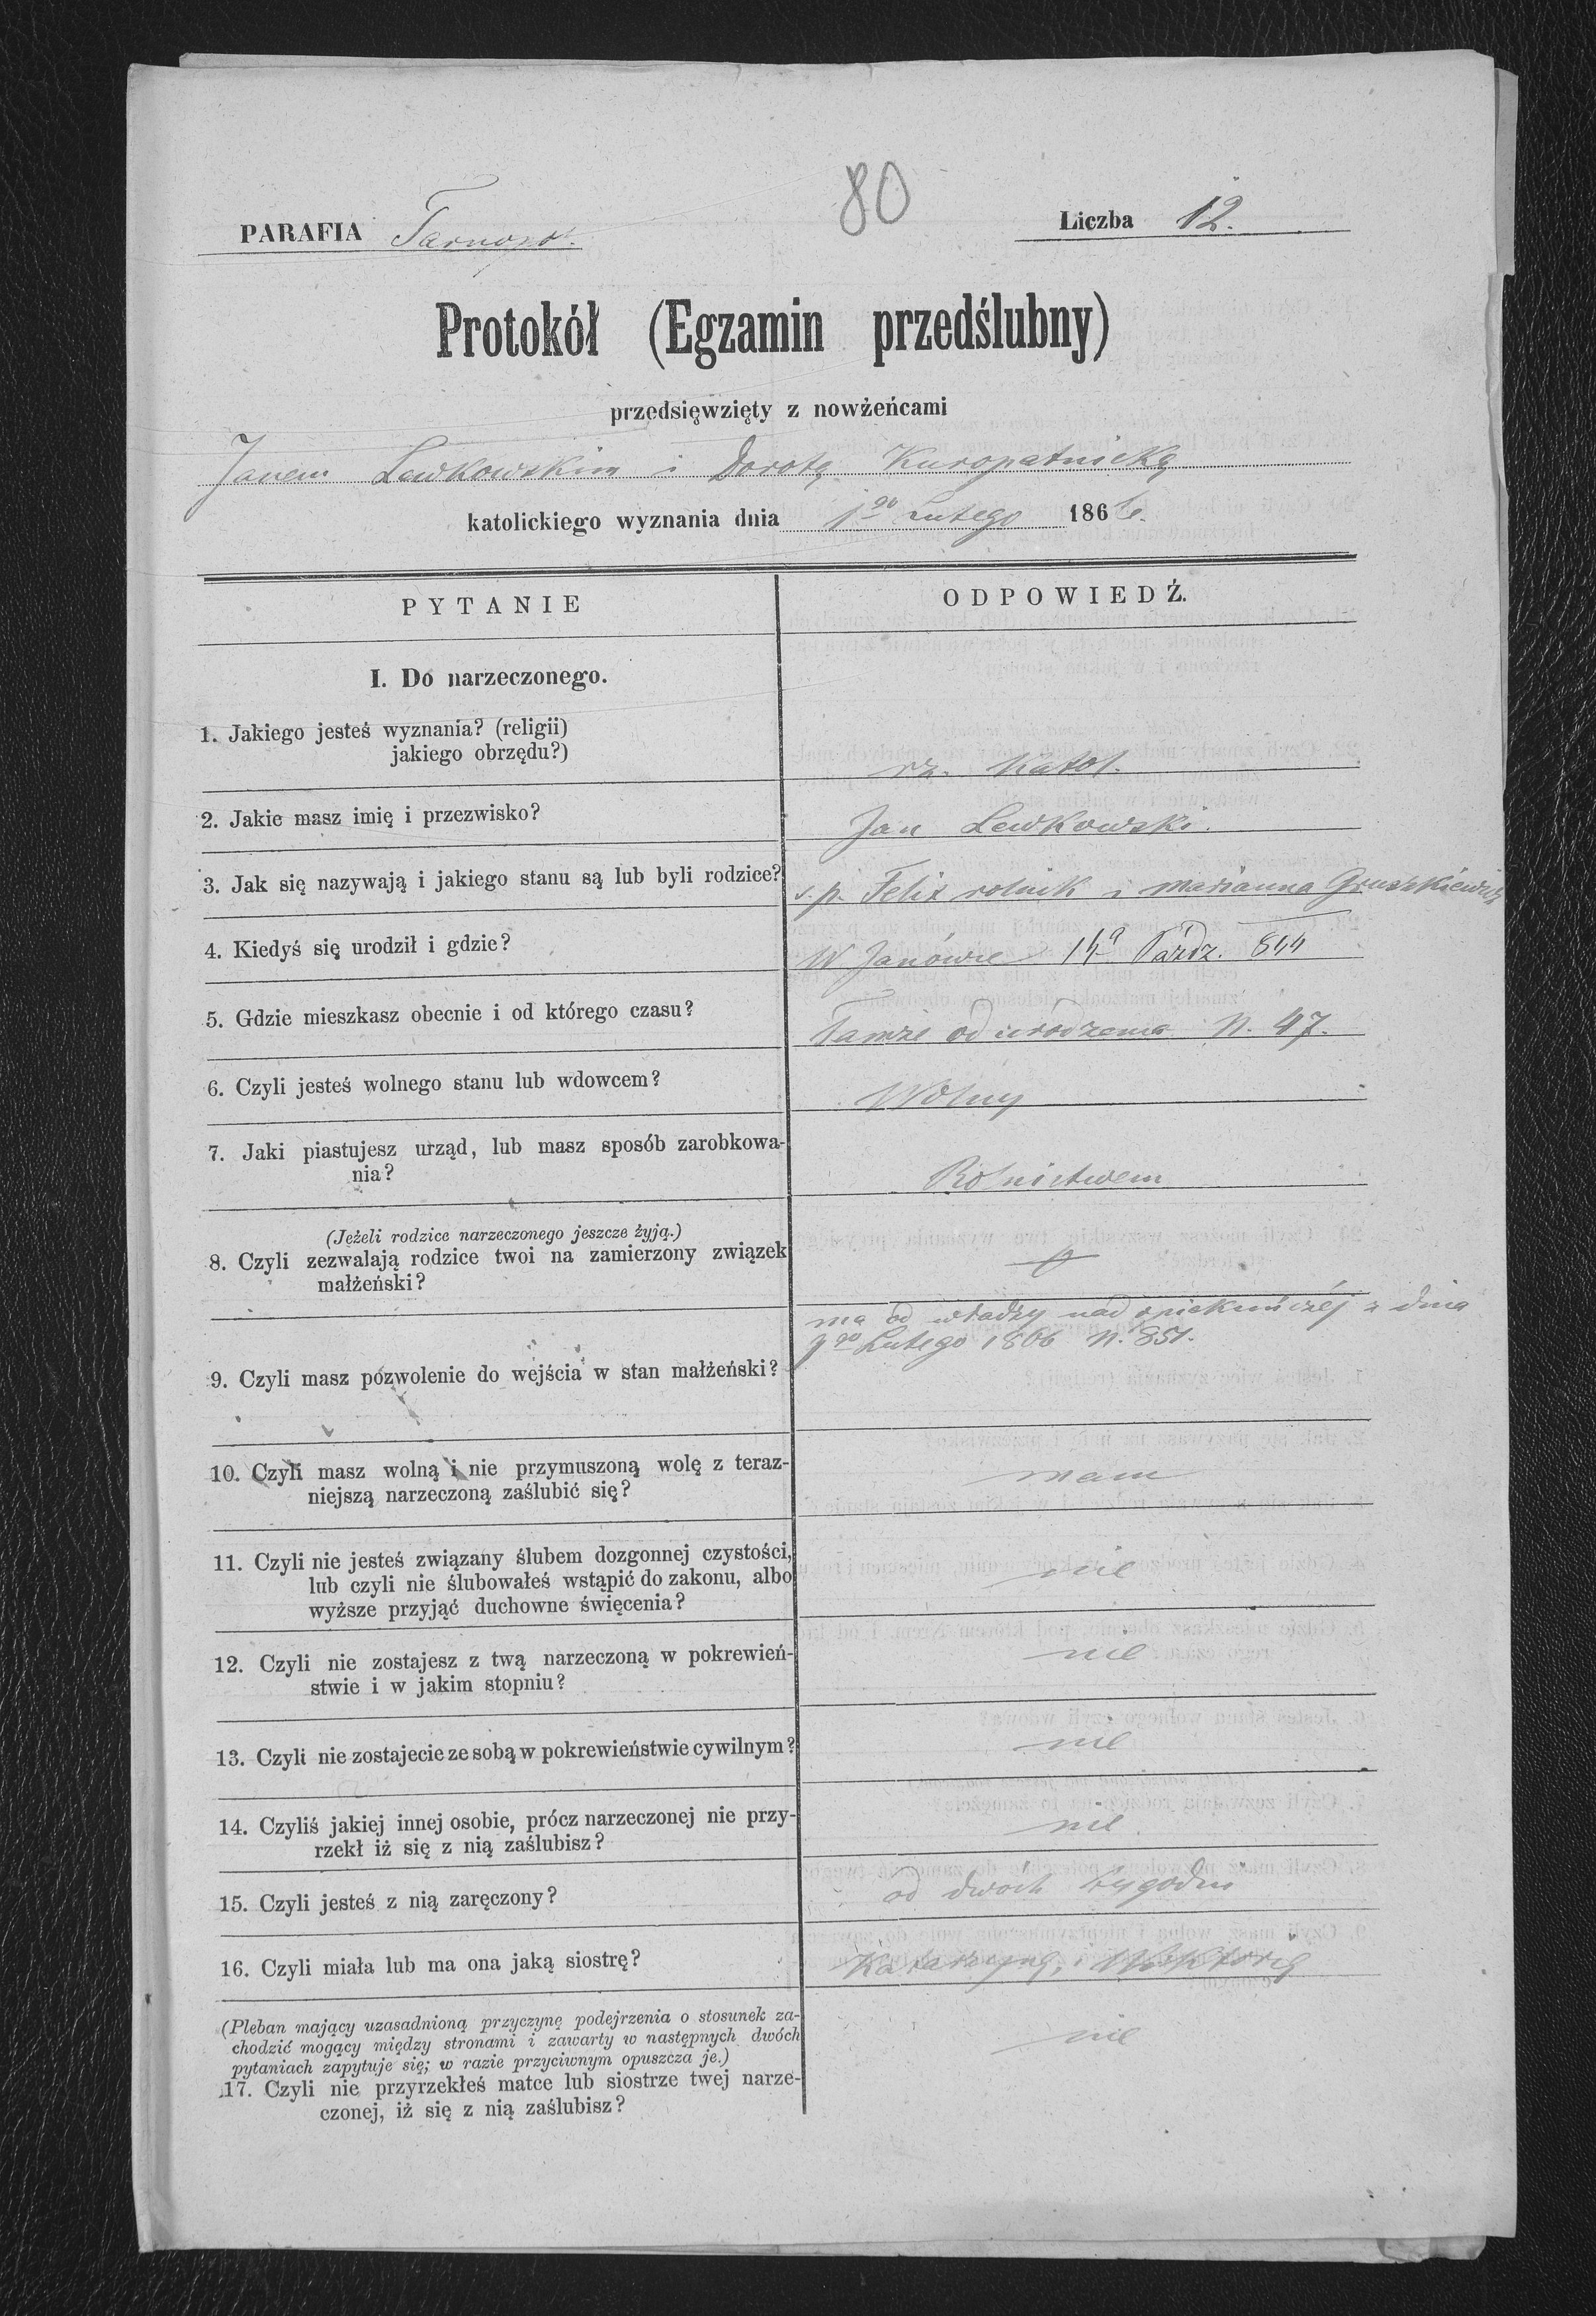 80
PARAFIA Tarnopol.
Liczba 12.
Protokół (Egzamin przedślubny)
przedsięwzięty z nowżeńcami
Janem Lewkowskim i Dorotą Kuropatnicką
katolickiego wyznania dnia 1go Lutego 1866.
PYTANIE
ODPOWIEDŹ.
I. Do narzeczonego.
1. Jakiego jesteś wyznania? (religii)
jakiego obrzędu?)
rz. Katol.
2. Jakie masz imię i przezwisko?
Jan Lewkowski.
3. Jak się nazywają i jakiego stanu są lub byli rodzice?
s. p. Felix rolnik i Marianna Gruszkiewicz
4. Kiedyś się urodził i gdzie?
W Janówie 14a Paźdz. 844
5. Gdzie mieszkasz obecnie i od którego czasu?
Tamże od urodzenia N. 47.
6. Czyli jesteś wolnego stanu lub wdowcem?
Wolny
7. Jaki piastujesz urząd, lub masz sposób zarobkowa-
nia?
Rolnictwem
(Jeżeli rodzice narzeczonego jeszcze żyją.)
8. Czyli zezwalają rodzice twoi na zamierzony związek
małżeński?
9. Czyli masz pozwolenie do wejścia w stan małżeński?
ma od władzy nad opiekuńczéj z dnia
9go Lutego 1866 N. 851.
10. Czyli masz wolną i nie przymuszoną wolę z teraz-
niejszą narzeczoną zaślubić się?
mam
11. Czyli nie jesteś związany ślubem dozgonnej czystości,
lub czyli nie ślubowałeś wstąpić do zakonu, albo
wyższe przyjąć duchowne święcenia?
nie
12. Czyli nie zostajesz z twą narzeczoną w pokrewień-
stwie i w jakim stopniu?
nie
13. Czyli nie zostajecie ze sobą w pokrewieństwie cywilnym?
nie
14. Czyliś jakiej innej osobie, prócz narzeczonej nie przy-
rzekł iż się z nią zaślubisz?
nie.
15. Czyli jesteś z nią zaręczony?
od dwóch tygodni
16. Czyli miała lub ma ona jaką siostrę?
Katarzynę, i Wiktorię
(Pleban mający uzasadnioną przyczynę podejrzenia o stosunek za-
chodzić mogący między stronami i zawarty w następnych dwóch
pytaniach zapytuje się; w razie przyciwnym opuszcza je.)
17. Czyli nie przyrzekłeś matce lub siostrze twej narze-
czonej, iż się z nią zaślubisz?
nie